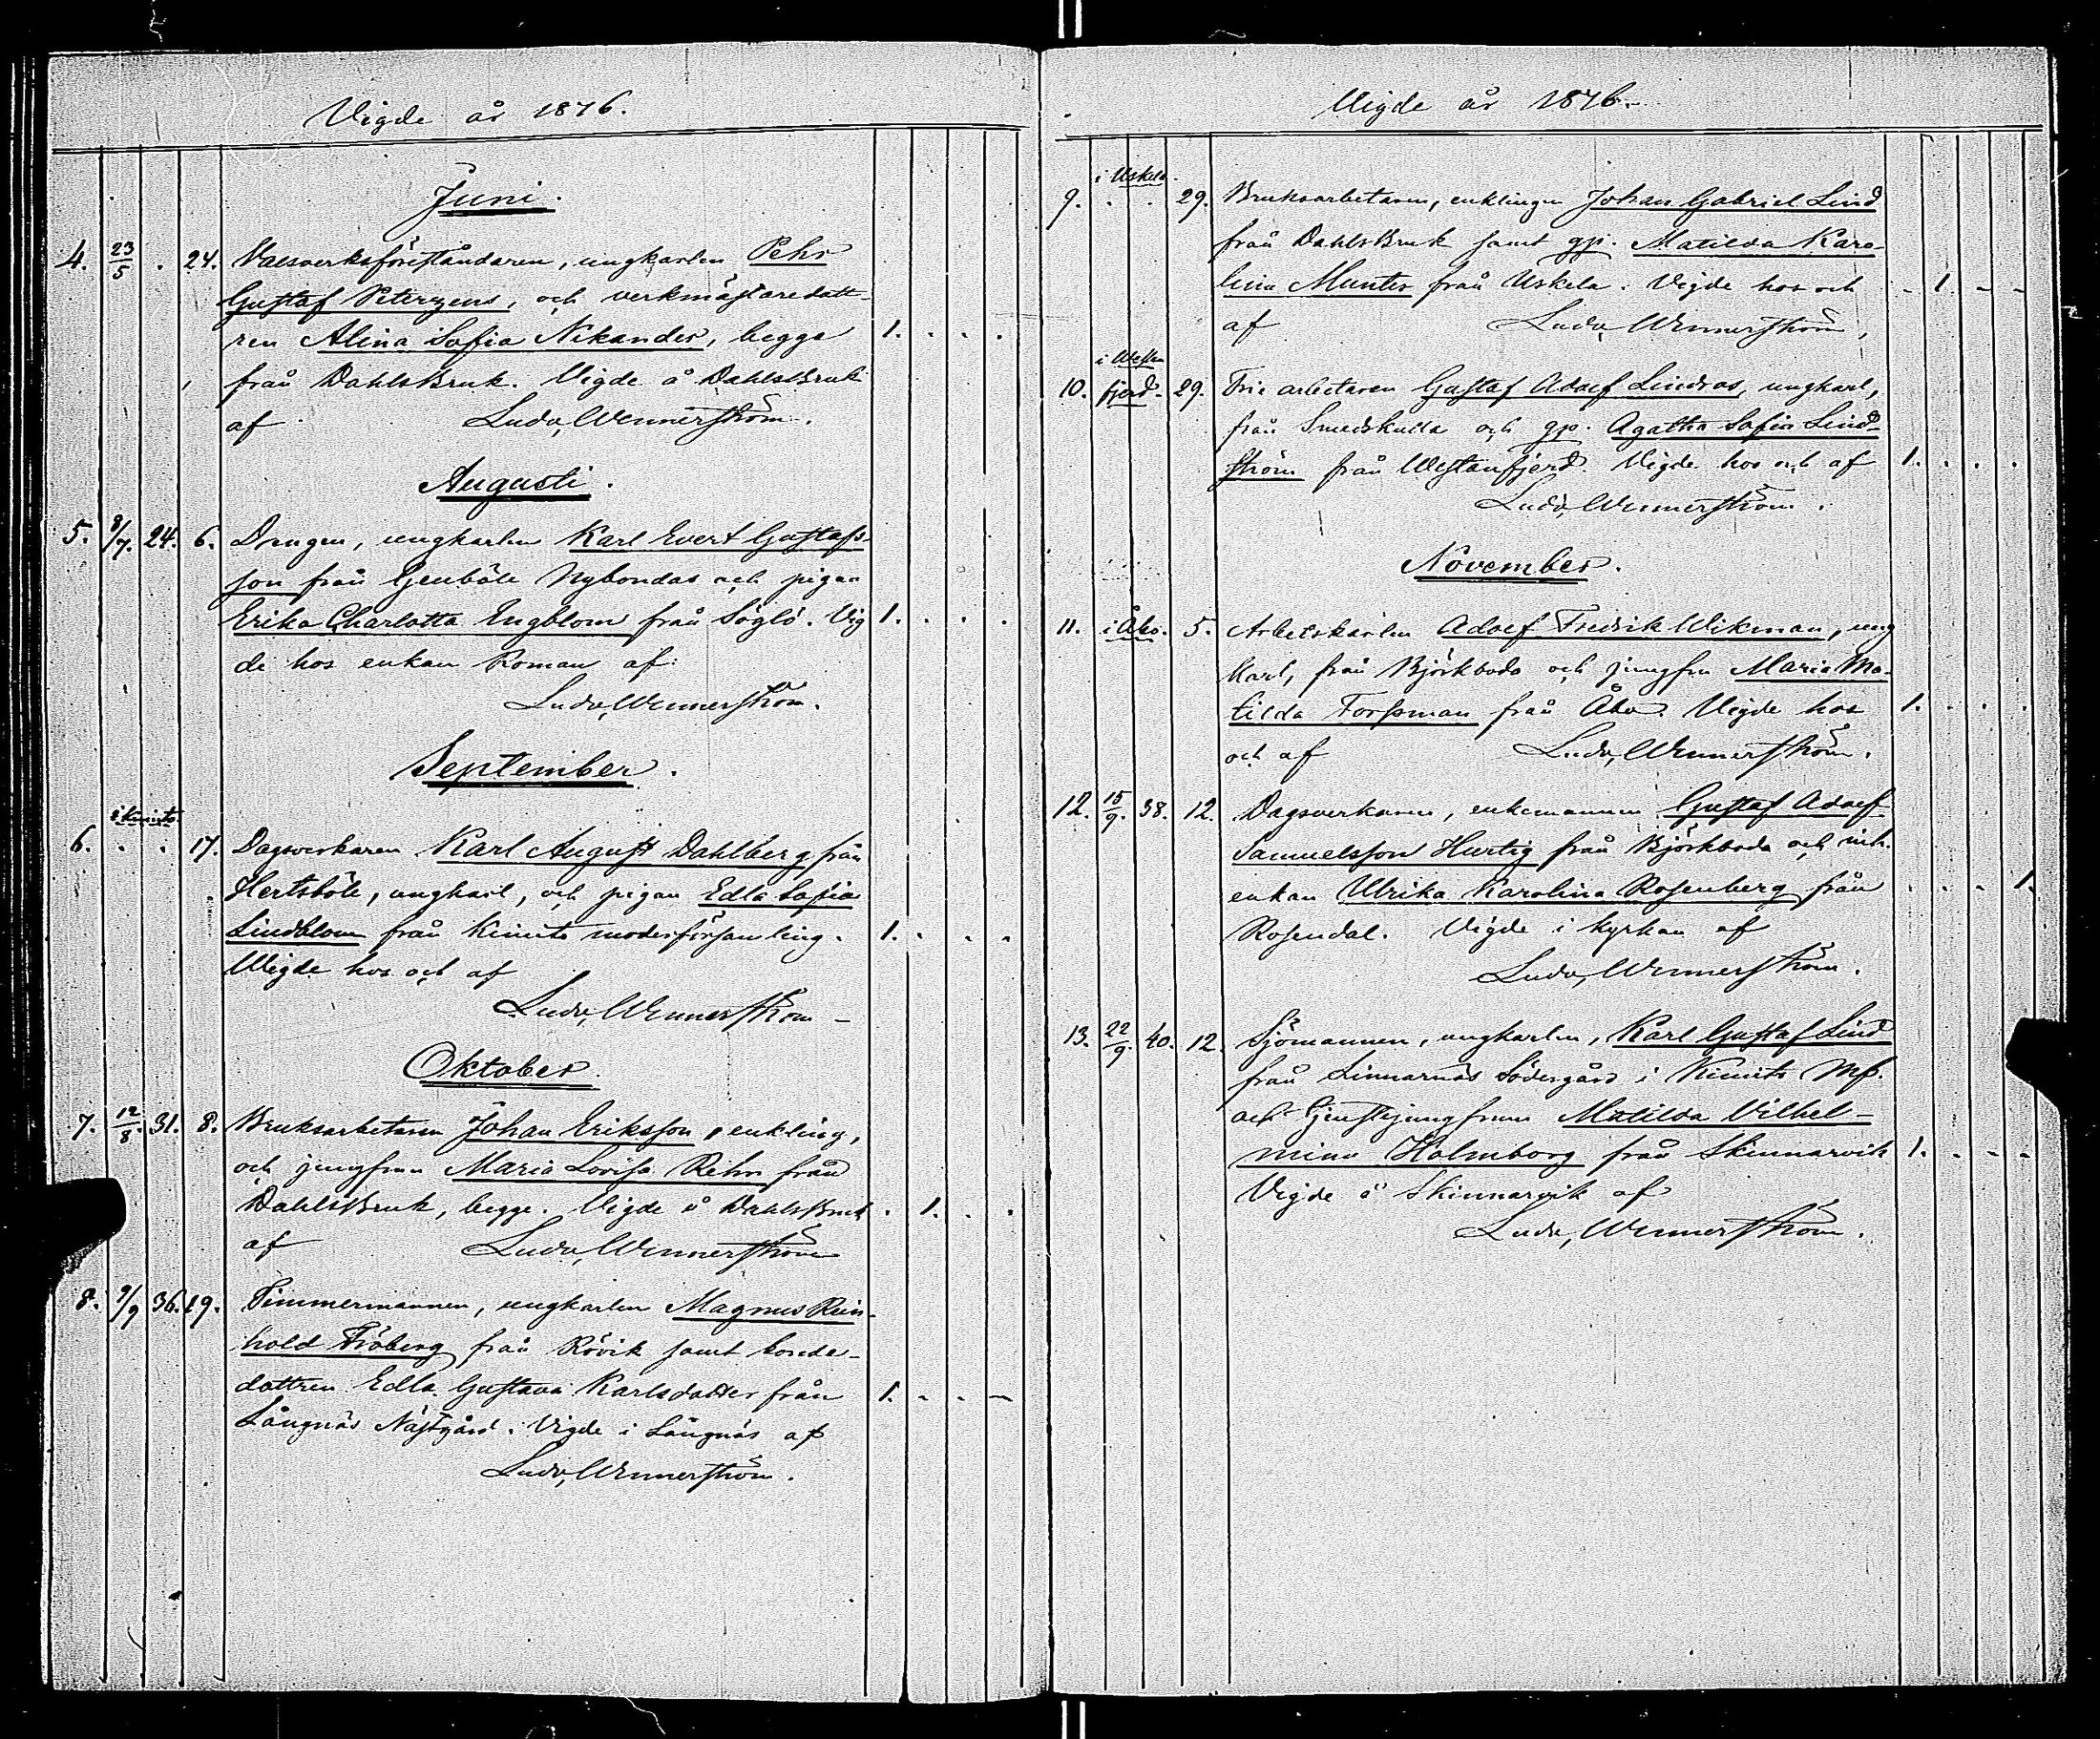 Vigde år 1876.
Juni.
4. 23/5 . 24. Valsverksföreståndaren, ungkarlen Pehr
Gustaf Peterzens, och verkmästaredott-
ren Alina Sofia Nikander, begge 1. . . .
från DahlsBruk. Vigde å DahlsBruk
af Ludv, Wennerström.
Augusti.
5. 9/7. 24. 6. Drengen, ungkarlen Karl Evert Gustafs-
son från Genböle Nybondas och pigan
Erika Charlotta Engblom från Söglö. Vig 1. . . .
de hos enkan Roman af:
Ludv, Wennerström.
September.
i Kimito
6. . . 17. Dagsverkaren Karl August Dahlberg från
Hertsböle, ungkarl, och pigan Edla Sofia
Lindblom från Kimito moderförsamling. 1. . . .
Wigde hos och af
Ludv, Wennerström
Oktober.
7. 12/8. 31. 8. Bruksarbetaren Johan Eriksson, enkling,
och jungfrun Maria Lovisa Rehn från
DahlsBruk, begge. Vigde å DahlsBruk . 1. . .
af Ludv, Wennerström
8. 9/9 36. 19. Timmermannen, ungkarlen Magnus Rein-
hold Fröberg från Rövik samt bonde-
dottren Edla Gustava Karlsdotter från 1. - . -
Långnäs Nästgård. Vigde i Långnäs af
Ludv, Wennerström.
Vigde år 1876.
i Uskela.
9. . . 29. Bruksarbetaren, enklingen Johan Gabriel Lind
från DahlsBruk samt gp. Matilda Karo-
lina Munter från Uskela. Vigde hos och - 1. - -
af Ludv, Wennerström,
i Westan
10. fjerd. 29. Frie arbetaren Gustaf Adolf Lindros, ungkarl,
från Smedskulla och gp. Agatha Sofia Lind-
ström från Westanfjerd. Vigde hos och af 1. . . .
Ludv, Wennerström.
November.
11. i Åbo. 5. Arbetskarlen Adolf Fredrik Wikman, ung
karl, från Björkboda och jungfru Maria Ma-
tilda Forssman från Åbo. Vigde hos 1. . . .
och af Ludv, Wennerström.
12. 15/9. 38. 12. Dagsverkaren, enkemannen Gustaf Adolf
Samuelsson Hurtig från Björkboda och inh.
enkan Ulrika Karolina Rosenberg från . . . 1.
Rosendal. Vigde i kyrkan af
Ludv, Wennerström.
13. 22/9. 40. 12. Sjömannen, ungkarlen, Karl Gustaf Lind
från Linnarnäs Södergård i Kimito Mf.
och tjenstejungfrun Matilda Vilhel-
mina Holmborg från Skinnarvik 1. . - .
Vigde å Skinnarvik af
Ludv, Wennerström.